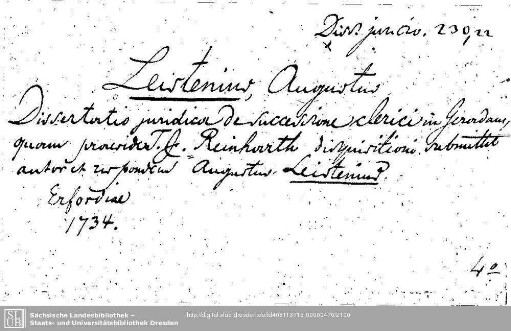 Diss. jur. civ. 230,22
Leistenius, Augustus
Dissertatio juridica de successione clerici in Geradam,
quam praeside T. J. Reinharth disquisitioni submittit
autor et respondens Augustus Leistenius
Erfordiae
1734.
4°
Sächsische Landesbibliothek –
Staats- und Universitätsbibliothek Dresden